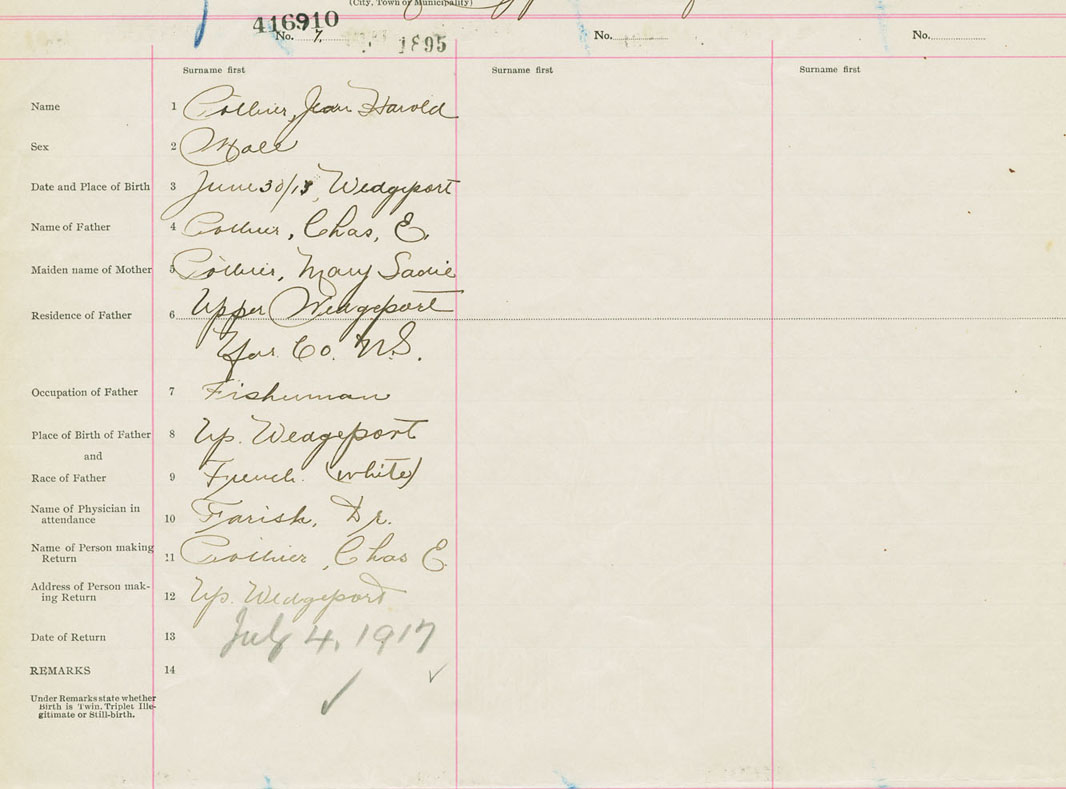 (City, Town or Municipality)
416910
No. 7. 1895 No. No.
Surname first Surname first Surname first
Name 1 Pothier, Jean Harold
Sex 2 Male
Date and Place of Birth 3 June 30/15, Wedgeport
Name of Father 4 Pothier, Chas, E.
Maiden name of Mother 5 Pothier, Mary Sadie
Residence of Father 6 Upper Wedgeport
Yar. Co. N.S.
Occupation of Father 7 Fisherman
Place of Birth of Father 8 Up. Wedgeport
and
Race of Father 9 French. (white)
Name of Physician in
attendance 10 Farish, Dr.
Name of Person making
Return 11 Pothier, Chas E.
Address of Person mak-
ing Return 12 Up. Wedgeport
Date of Return 13 July 4, 1917
REMARKS 14
Under Remarks state whether
Birth is Twin, Triplet Ille-
gitimate or Still-birth.